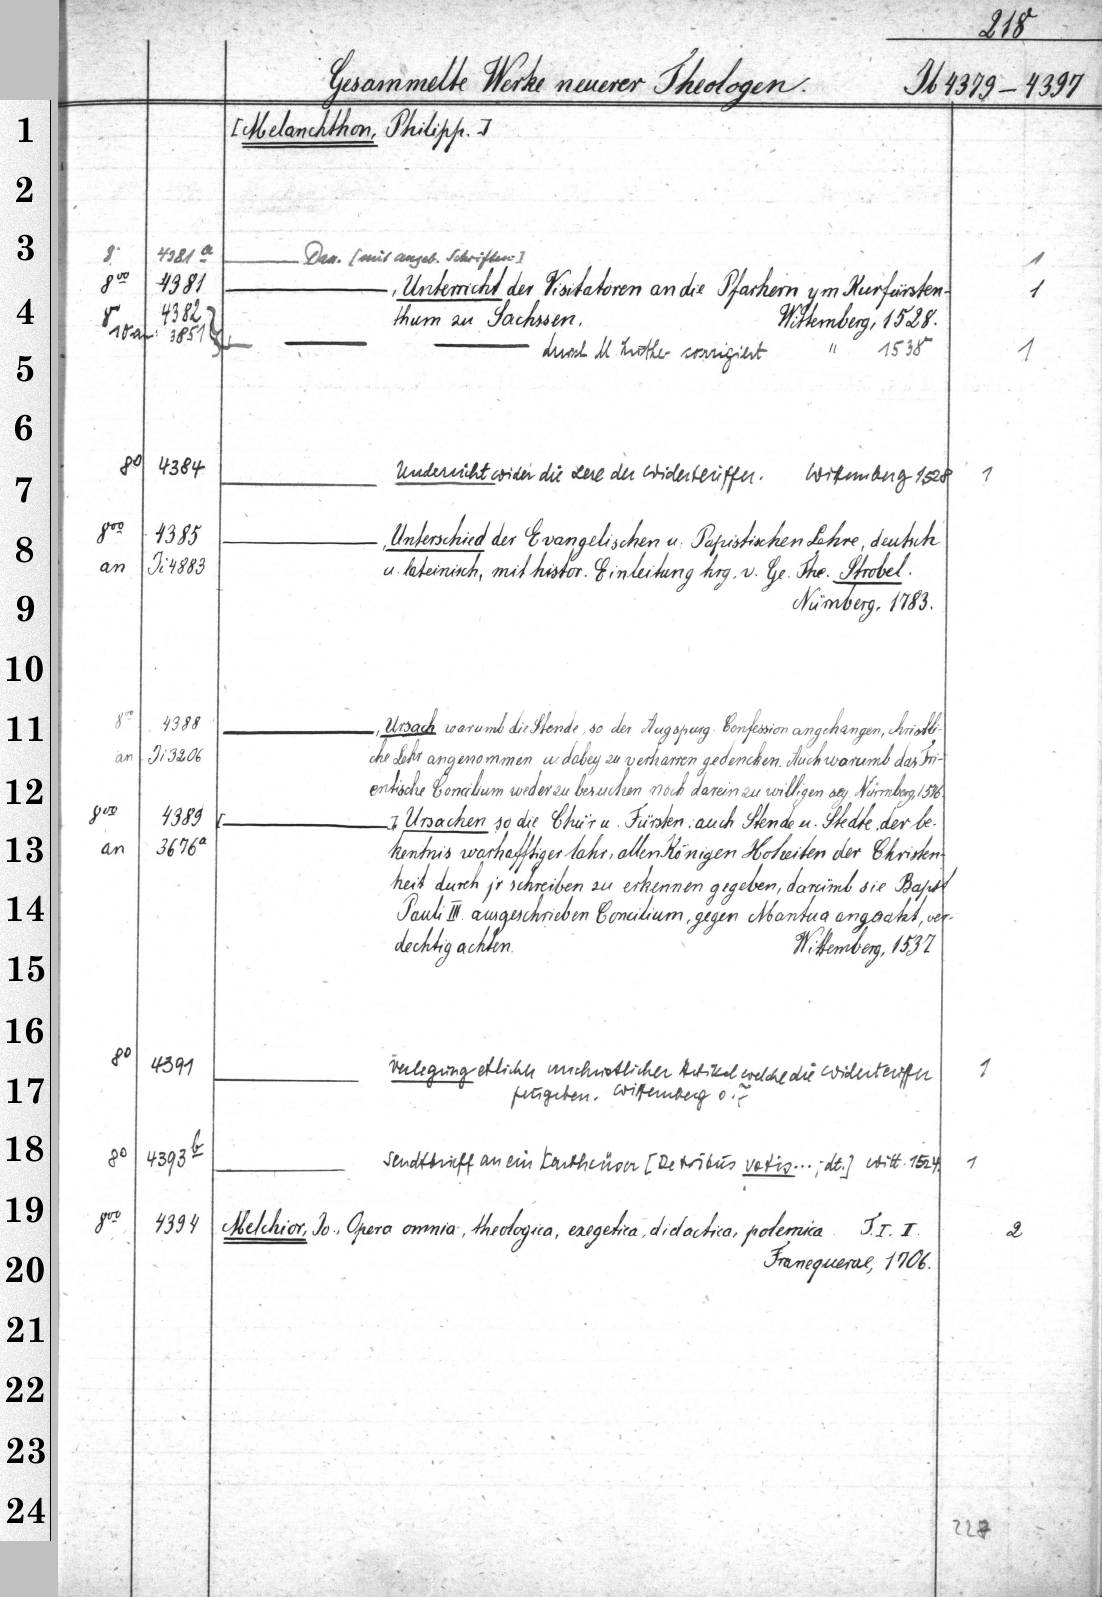 218
Gesammelte Werke neuerer Theologen. 4379-4397
1 [Melanchthon, Philipp.]
2
3 8. 4381 a Dass. [mit angeb. Schriften]  1
8vo 4381 , Unterricht der Visitatoren an die Pfarhern ym Kurfürsten- 1
4 8 4382 thum zu Sachssen. Wittemberg, 1528.
10 an 3851
5 durch M. Luther corrigiert " 1538 1
6
8o 4384 Underricht wider die Lere der Widerteuffer. Wittemberg 1528 1
7
8vo 4385 , Unterschied der Evangelischen u. Papistischen Lehre, deutsch
8 an Ji 4883 u. lateinisch, mit histor. Einleitung hrg. v. Ge. The. Strobel.
9 Nürnberg, 1783.
10
11 8vo 4388 , Ursach warumb die Stende, so der Augspurg. Confession angehangen, christli-
an Ji 3206 che Lehr angenommen u. dabey zu verharren gedencken. Auch warumb das Tri-
12 entische Concilium weder zu besuchen noch darein zu willigen sey. Nürmberg, 1546.
8vo 4389 [ ], Ursachen so die Chür u. Fürsten, auch Stende u. Stedte, der be-
13 an 3676a kentnis warhafftiger lahr, allen Königen Hoheiten der Christen-
heit durch jr schreiben zu erkennen gegeben, darümb sie Bapst
14 Pauli III. ausgeschrieben Concilium, gegen Mantua angesatzt, ver-
15 dechtig achten. Wittemberg, 1537
16
8o 4391 Verlegung etlicher unchristlicher Artikel welche die Widerteuffer 1
17 furgeben. Wittemberg o. J.
18 8o 4393 b Sendtbrieff an ein Kartheuser [De tribus votis...; dt.] Witt. 1524. 1
19 8vo 4394 Melchior, Jo., Opera omnia, theologica, exegetica, didactica, polemica T. I. II. 2
20 Franequerae, 1706.
21
22
23
24
227